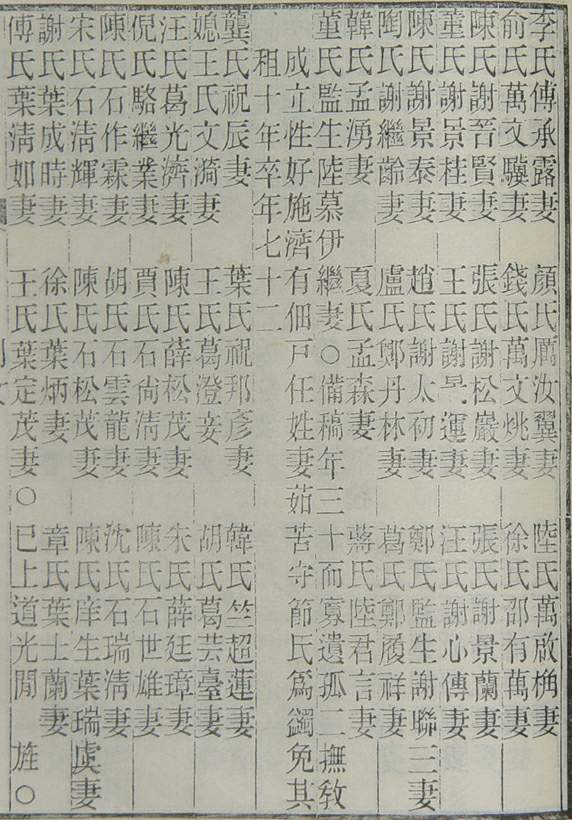 李氏傅承露妻 顏氏厲汝翼妻 陸氏萬啟桷妻
俞氏萬文驥妻 錢氏萬文烑妻 徐氏邵有萬妻
陳氏謝晉賢妻 張氏謝松巖妻 張氏謝景蘭妻
董氏謝景桂妻 王氏謝 運妻 汪氏謝心傳妻
陳氏謝景泰妻 趙氏謝太初妻 鄭氏監生謝聯三妻
陶氏謝繼齡妻 盧氏鄭丹林妻 葛氏鄭履祥妻
韓氏孟湧妻 夏氏孟森妻 蔣氏陸君言妻
董氏監生陸慕伊繼妻○備稿年三十而寡遺孤二撫敎
成立性好施濟有佃戸任姓妻茹苦守節氏爲蠲免其
租十年卒年七十二
龔氏祝辰妻 葉氏祝邦彥妻 韓氏竺超蓮妻
媳王氏文漪妻 王氏葛澄妾 胡氏葛芸臺妻
汪氏葛光濟妻 陳氏薛松茂妻 朱氏薛廷璋妻
倪氏駱繼業妻 賈氏石尙淸妻 陳氏石世雄妻
陳氏石作霖妻 胡氏石雲龍妻 沈氏石瑞淸妻
宋氏石淸輝妻 陳氏石松茂妻 陳氏庠生葉瑞虞妻
謝氏葉成時妻 徐氏葉炳妻 章氏葉士蘭妻
傅氏葉淸如妻 王氏葉定茂妻○ 已上道光閒 旌○